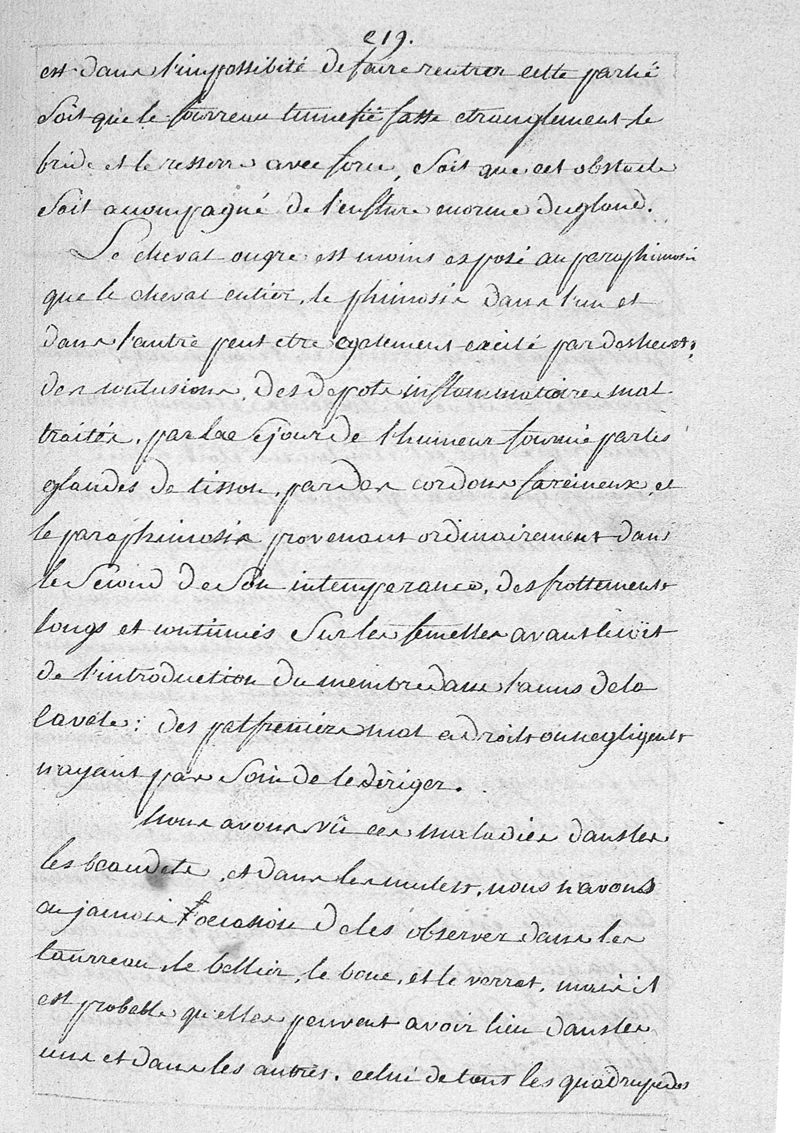 219.
est dans l'impossibité de faire rentrer cette partié
soit que le fourreau tumefié fasse etranglement le
bride et le resserre avec force, soit que cet obstacle
soit accompagné de l'enflure enorme du gland.
Le cheval ongre est moins exposé au paraphimosis
que le cheval entier, le phimosis dans l'un et
dans l'autre peut etre egalement excité par des heurts,
des contusions, des depots inflammatoires mal
traités, par lae sejour de l'humeur fournie par les
glandes de tisson, par des cordons farcineux, et
le paraphimosis provenant ordinairement dans
le second de son intemperance, des frottements
longs et continués sur les femelles avant le coït
de l'introduction du membre dans l'anus de la
cavale; des palfreniers mal adroits ou negligents
n'ayant pas soin de le diriger.
Nous avons vû ces maladies dans les
les beaudets, et dans les mulets, nous n'avons
eu jamais l'occasion de les observer dans les
taurreau, le bellier, le bouc, et le verrat, mais il
est probable qu'elles peuvent avoir lieu dans les
uns et dans les autres. celui de tous les quadrupedes